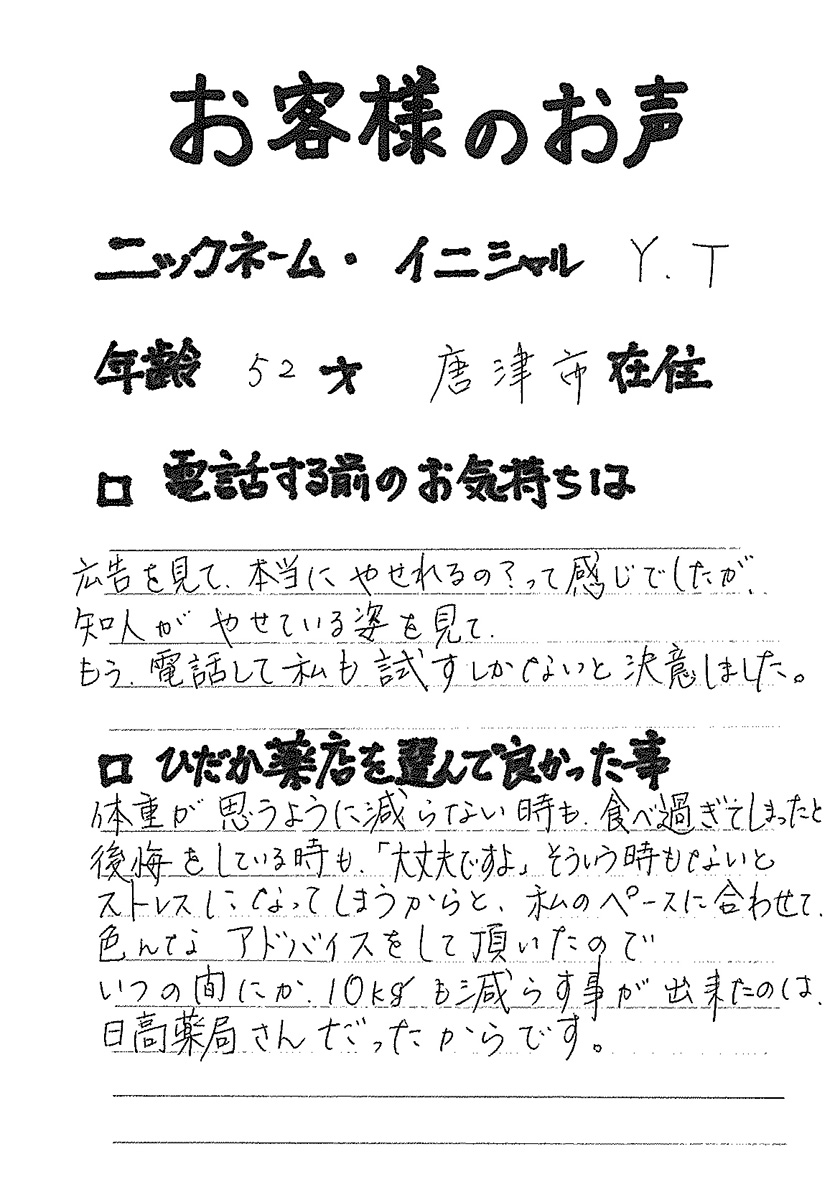 お客様のお声
ニックネーム・イニシャル Y.T
年齢 52 才 唐津市在住
□ 電話する前のお気持ちは
広告を見て、本当にやせれるの?って感じでしたが、
知人がやせている姿を見て、
もう、電話して私も試すしかないと決意しました。
□ ひだか薬店を選んで良かった事
体重が思うように減らない時も、食べ過ぎてしまったと
後悔をしている時も、「大丈夫ですよ」そういう時もないと
ストレスになってしまうからと、私のペースに合わせて、
色んなアドバイスをして頂いたので
いつの間にか、10kgも減らす事が出来たのは、
日高薬局さんだったからです。